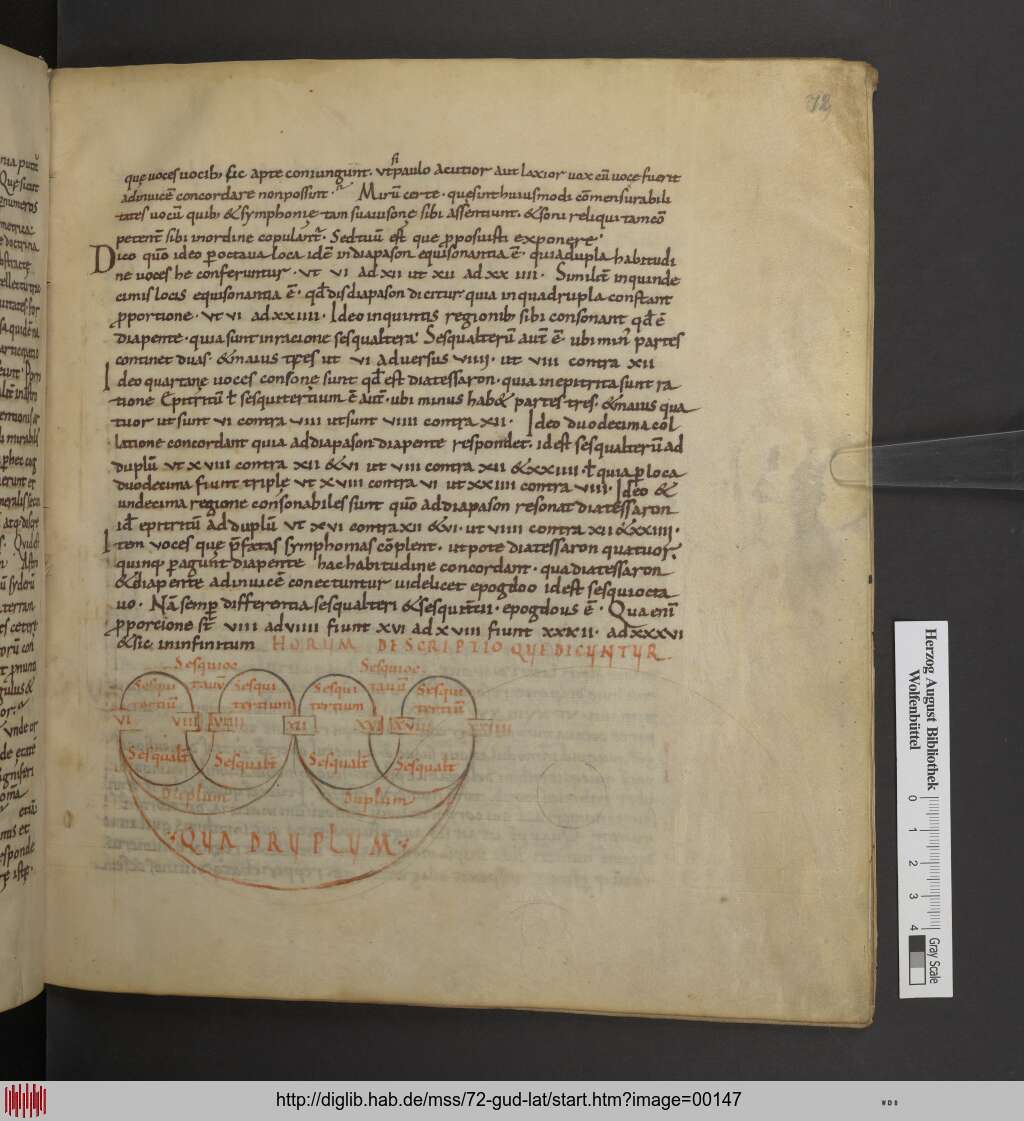 72
que uoces uocib; sic apte coniungunt. ut si paulo acutior aut laxior uox cū uoce fuerit
adinuicē concordare non possint. Mirū certe. que sint huiusmodi cōmensurabili
tates uocū quib; & symphonię tam suauisone sibi assentiunt. & soni reliqui tam eo
petent sibi in ordine copulant. Sed tuū est que proposuisti exponere.
Dico quō ideo p octaua loca idē in diapason equisonantia ē. quia dupla habitudi
ne uoces he conferuntur. ut vi ad xii ut xii ad xx iiii. Similit in quinde
cimis locis equisonantia ē. qđ disdiapason dicitur. quia in quadrupla constant
pportione. ut vi ad xxiiii. Ideo in quintis regionib; sibi consonant qđ ē
diapente. quia sunt in racione sesqualtera. Sesqualterū aut ē. ubi min partes
continet duas. & maius tres ut vi aduersus viiii. ut viii contra xii
Ideo quartanę uoces consonę sunt qđ est diatessaron. quia in epitrita sunt ra
tione Epitritū ł sesquitertium ē aut. ubi minus hab& partes tres. & maius qua
tuor ut sunt vi contra viii ut sunt viiii contra xii. Ideo duodecima col
latione concordant quia ad diapason diapente respondet. id est sesqualterū ad
duplū ut xviii contra xii & vi ut viii contra xii & xxiiii. ł quia p loca
duodecima fiunt triple ut xviii contra vi ut xxiiii contra viii. Ideo &
undecima regione consonabiles sunt quō ad diapason resonat diatessaron
id epitritū ad duplū ut xvi contra xii & vi. ut viiii contra xii & xxiiii.
Item uoces que pfatas symphonias cōplent. utpote diatessaron quatuor.
quinq; pagunt diapente hac habitudine concordant. qua diatessaron
& diapente adinuicē conectuntur uidelicet epogdoo id est sesquiocta
uo. Nā semp differentia sesqualteri & sesquitertii. epogdous ē. Qua enī
pporcione st viiii ad viii fiunt xvi ad xviii fiunt xxxii. ad xxxvi
& sic in infinitum HORUM DESCRIPTIO QUE DICUNTUR
Sesquioc Sesquioc
Sesqui tauū Sesqui Sesqui tauū Sesqui
tertiū tertium tertium tertiū
vi viii viiii xii xvi xviii xxiiii
Sesqualt Sesqualt Sesqualt Sesqualt
Duplum Duplum
QUADRUPLUM
Herzog August Bibliothek
Wolfenbüttel
0 1 2 3 4
Gray Scale
http://diglib.hab.de/mss/72-gud-lat/start.htm?image=00147